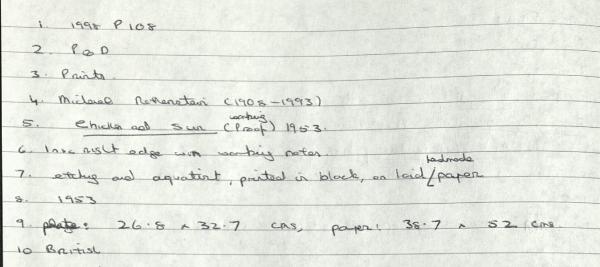 1. 1998 P108
2. P&D
3. Prints.
4. Michael Rothenstein (1908-1993)
5. Chicken and Sun (working Proof) 1953.
6. Inx right edge with working notes.
7. etching and aquatint, printed in black, on laid/handmade paper
8. 1953
9. plate: 26.8 x 32.7 cms, paper: 38.7 x 52 cms.
10 British